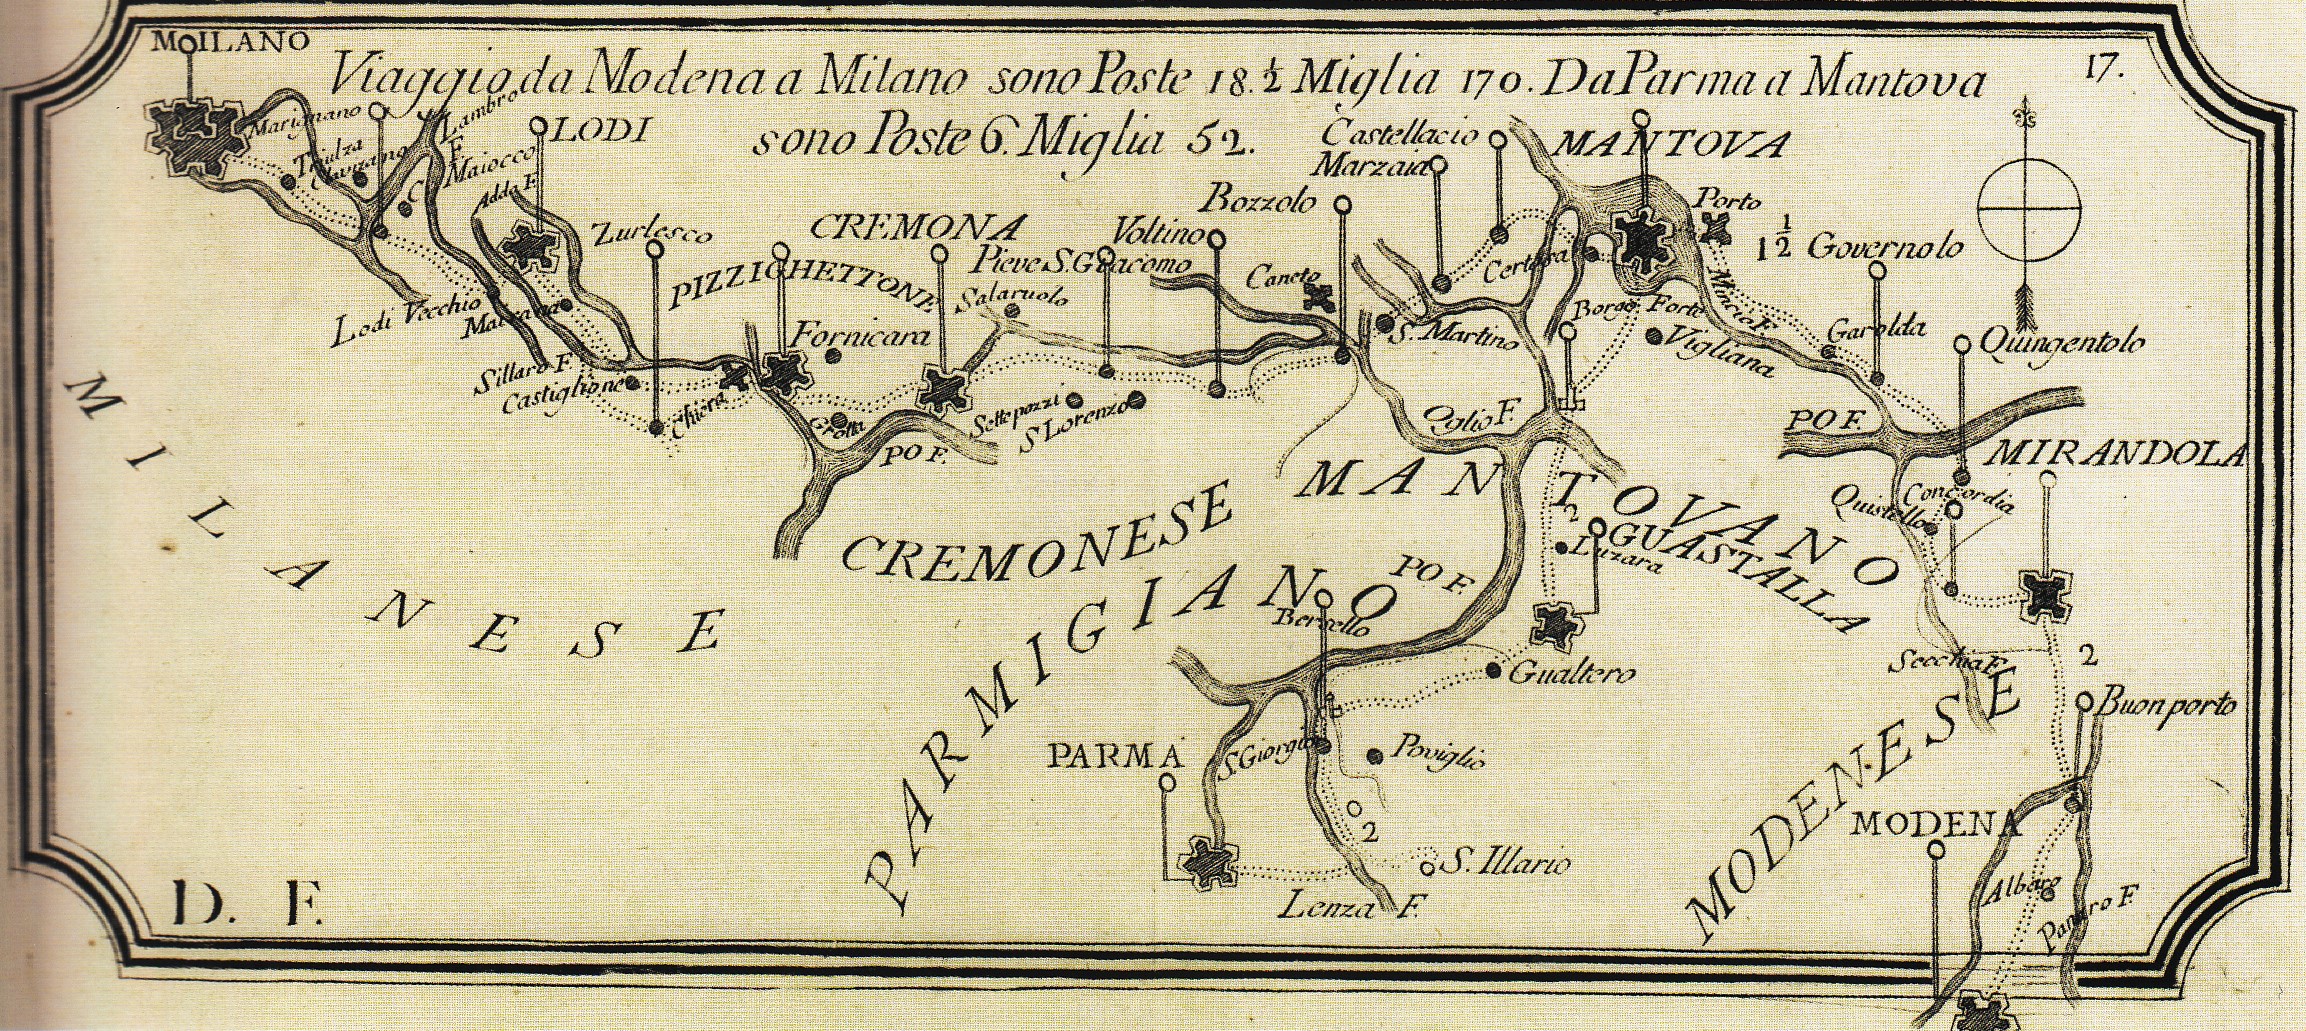 MOILANO
Viaggio da Modena a Milano sono Poste 18.½ Miglia 170. Da Parma a Mantova
sono Poste 6. Miglia 52.
17.
Marignano
Lambro F.
LODI
Triulza
C. Maiocco
Adda F.
Zurlesco
CREMONA
PIZZIGHETTONE
Pieve S. Giacomo
Voltino
Bozzolo
Castellacio
Marzaia
MANTOVA
Porto
1½
Governolo
Certosa
Caneto
Salaruolo
Lodi Vecchio
Fornicara
S. Martino
Borgo Forte
Vigliana
Mincio F.
Garolda
Quingentolo
Sillaro F.
Castiglione
Chiera
Grotta
Sette pozzi
S. Lorenzo
PO F.
Oglio F.
PO F.
MIRANDOLA
MILANESE
CREMONESE
MANTOVANO
Quistello
Concordia
2
GUASTALLA
Luzara
PO F.
PARMIGIANO
Bersello
Gualtero
Secchia F.
2
Buonporto
PARMA
S. Giorgio
Poviglio
MODENESE
MODENA
2
S. Illario
Lenza F.
Albero
Panaro F.
D. F.